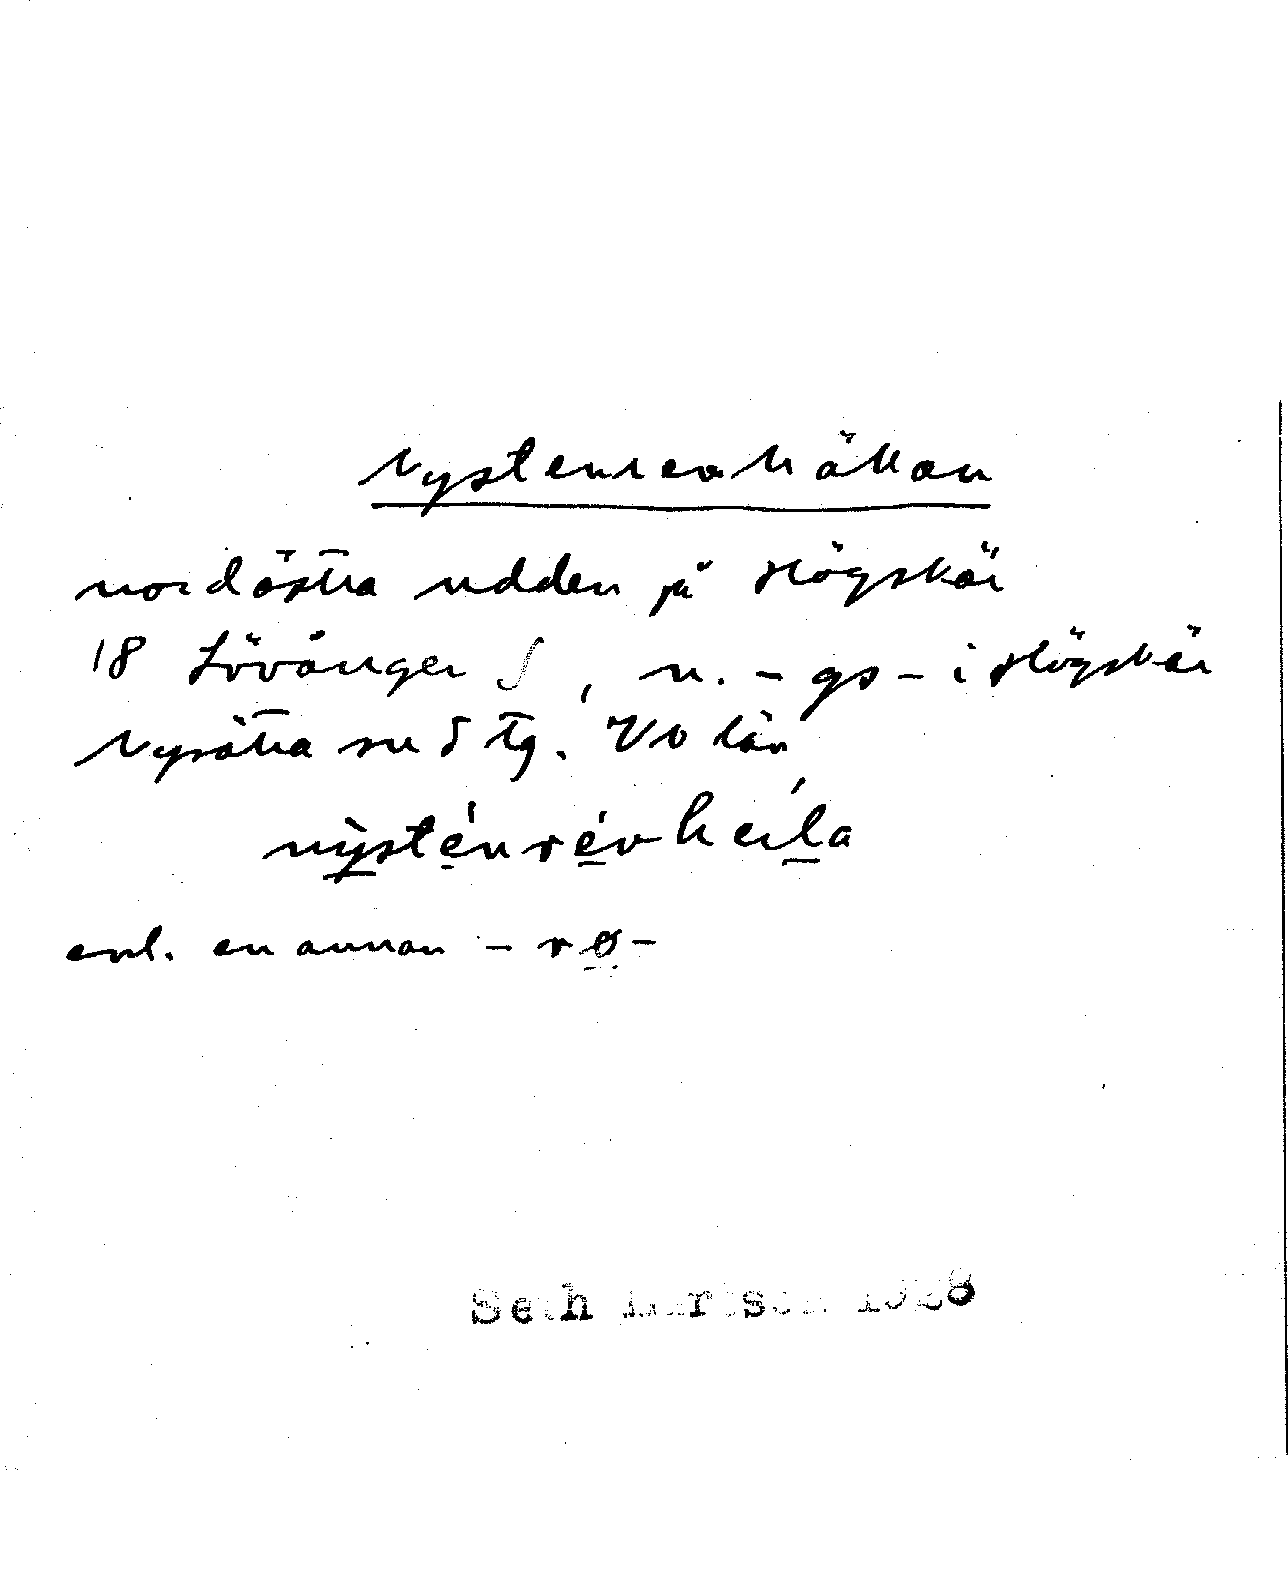 Nystenrevhällan
nordöstra udden på Högskär
18 Lövånger S, n. - gs - i Högskär
Nysätra sn S tg. Vb län
nỳsténrévhεila
enl. en annan - rø -
Seth 1928